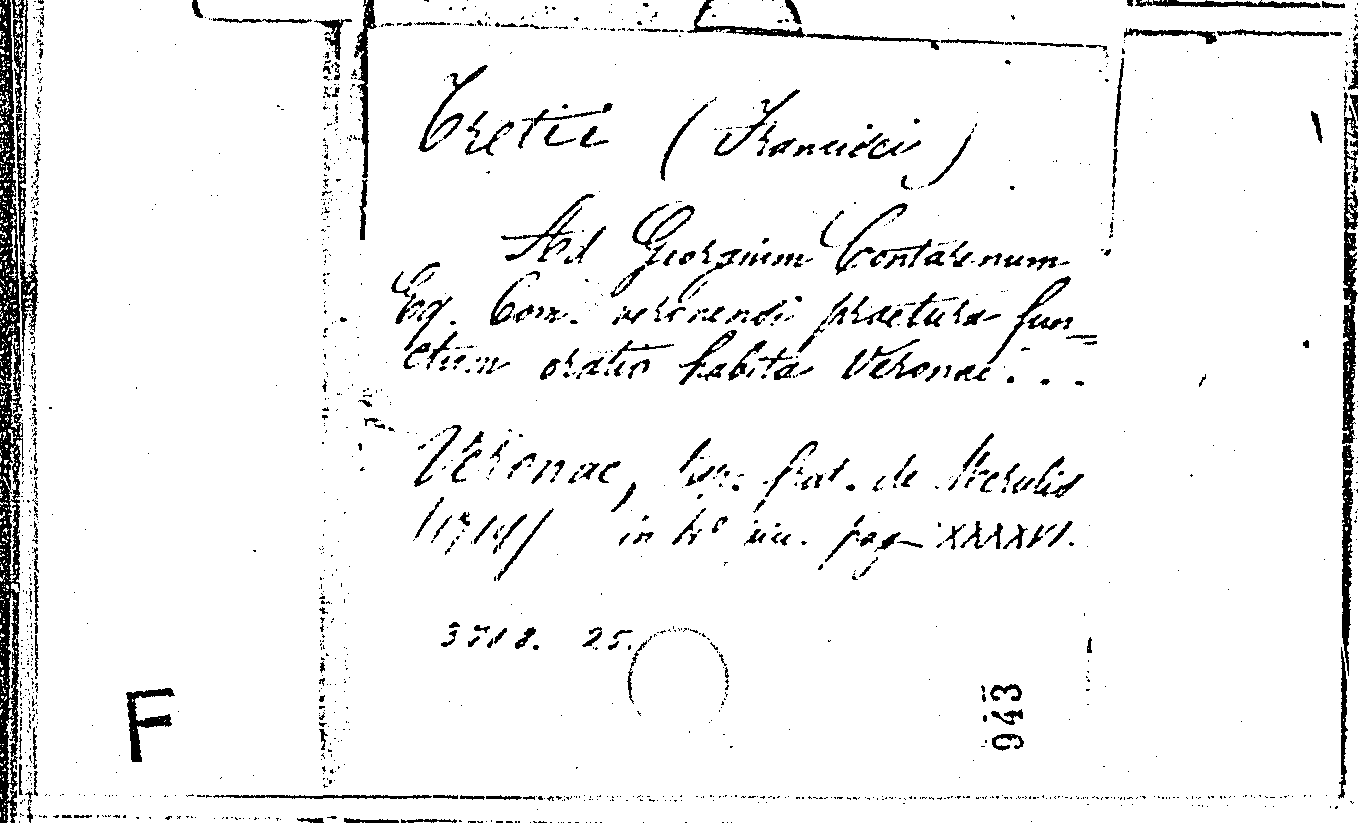 Tretii (Francisci)
Ad Georgium Contarenum
Eq. Com. veronensi praetura fun=
ctum oratio habita Veronae...
Veronae, typ. frat. de Merulis
in 4º pag XXXXVI.
25.
943
F